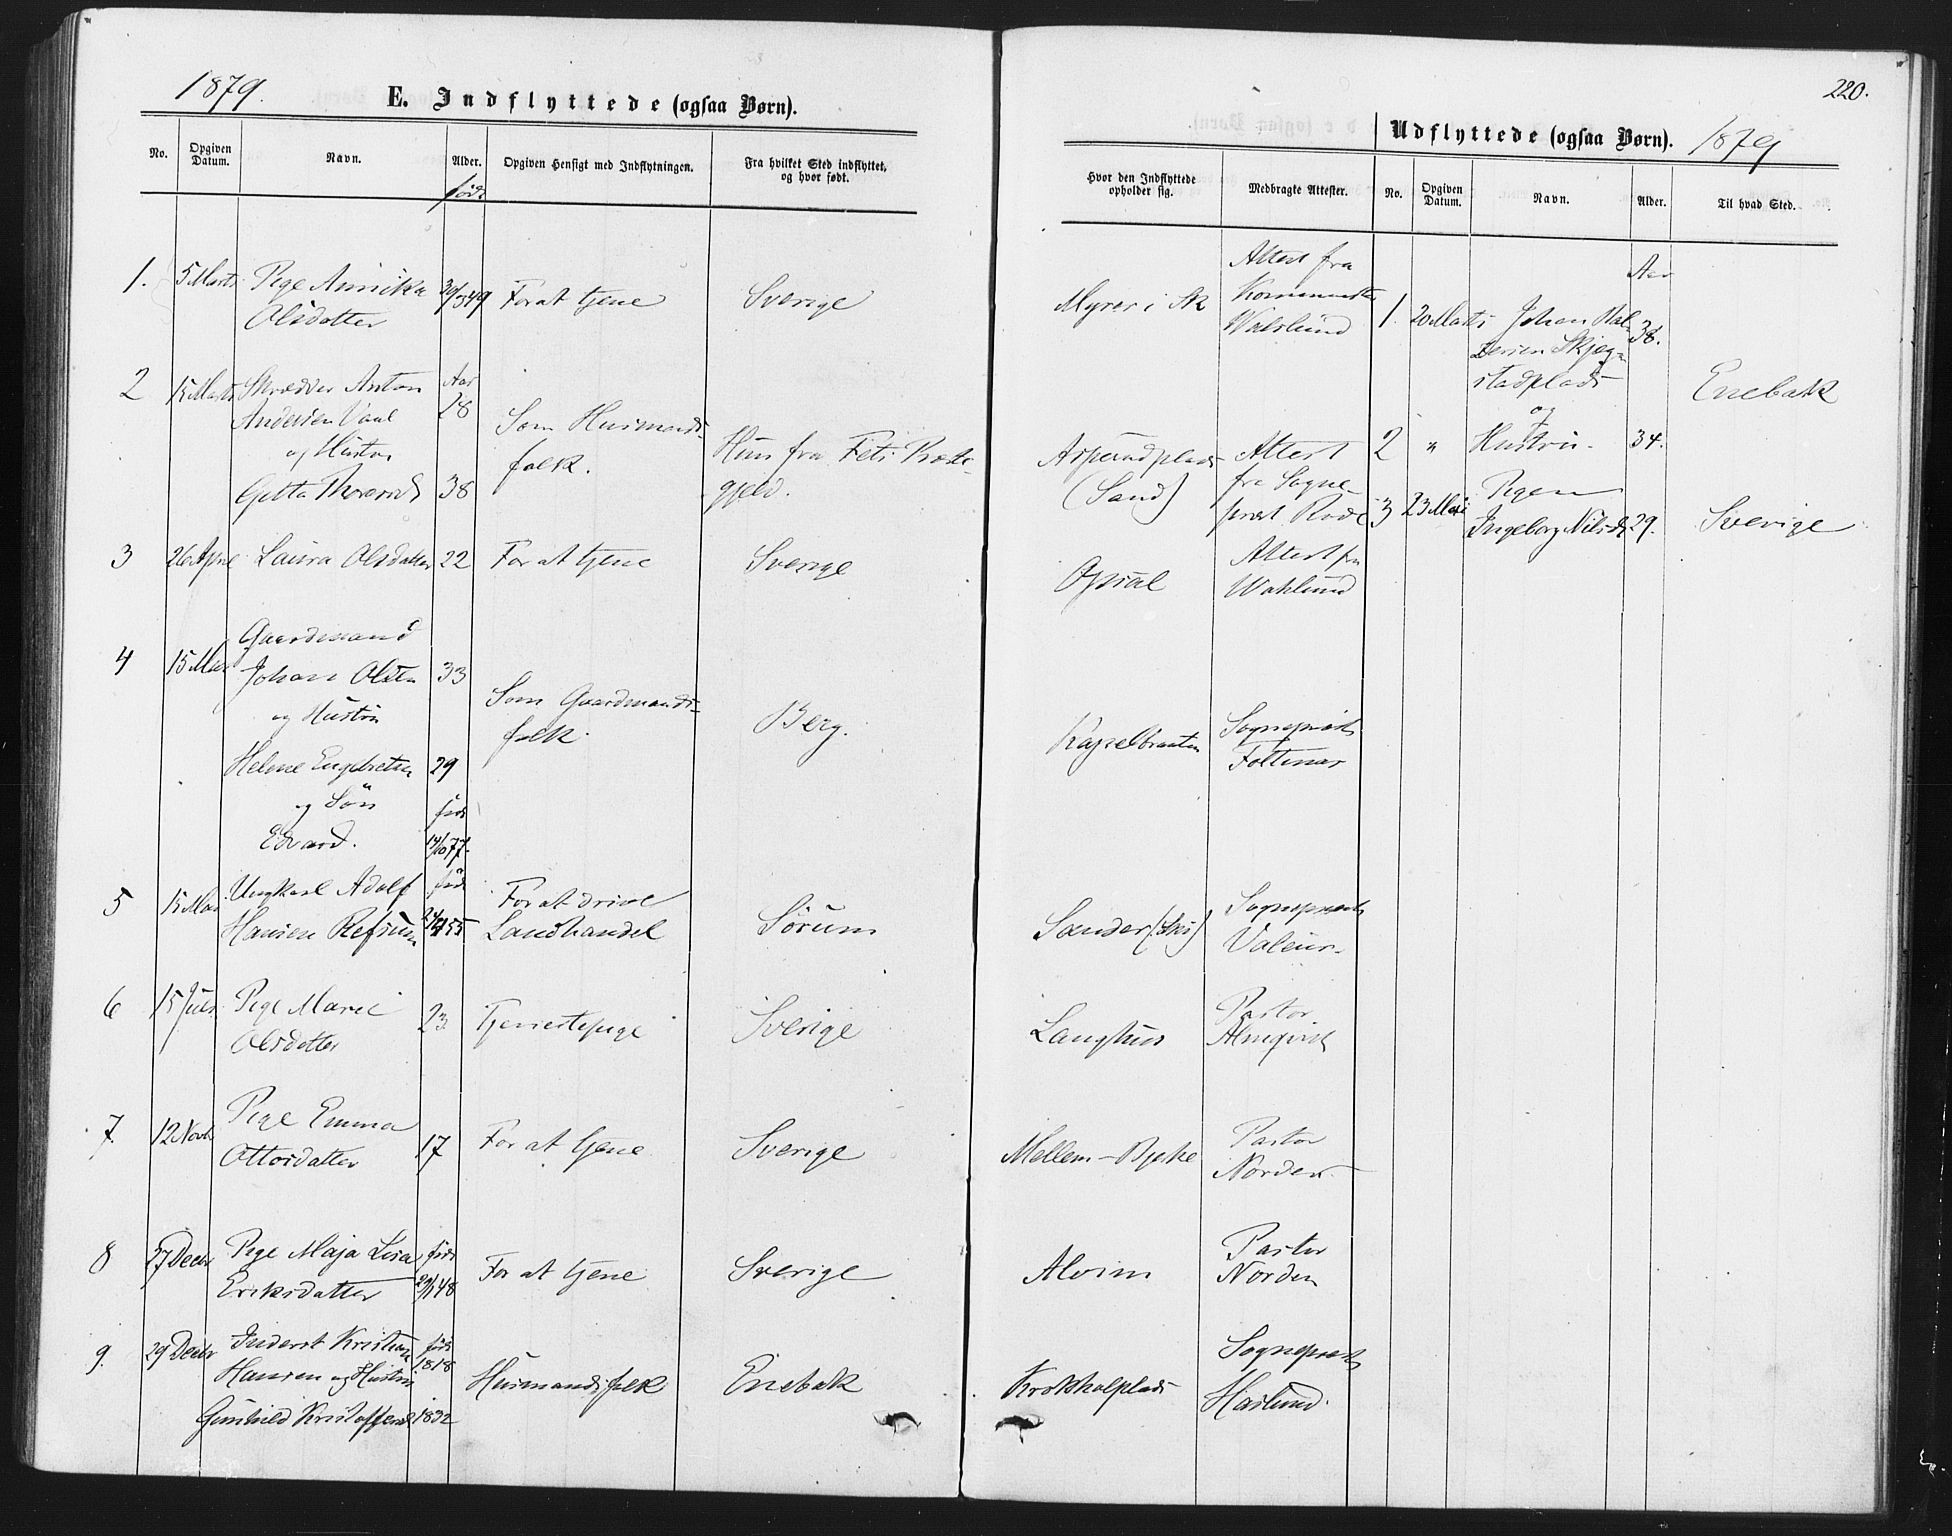 1879.
E. Indflyttede (ogsaa Børn).
No.
Opgiven Datum.
Navn.
Alder.
født
Opgiven Hensigt med Indflytningen.
Fra hvilket Sted indflyttet,
og hvor født.
1. 5 Marts Pige Annika 30/3 49 For at tjene Sverige
Olsdatter
2 15 Marts Skrædder Anton Aar
Andersen 28 Som Husmands-
og Hustru folk. Hun fra Fets Præste-
38 gjeld.
3 26 April Laura Olsdatter 22 For at tjene Sverige
Gaardmand
4 15 Mai Johan Olsen 33
og Hustru Som Gaardmands- Berg.
folk.
Helene Engebretsen 29
og Søn født
Edvard. 14/10 77.
5 15 Mai Ungkarl Adolf født For at drive
Hansen Refsum 55 Landhandel Sørum
6 15 Juli Pige Marie 23 Tjenestepige Sverige
Olsdatter
7. 12 Novb Pige Emma
Ottosdatter 17 For at tjene Sverige
8 27 Decbr Pige Maja Lisa født For at tjene Sverige
Eriksdatter 29/1 48
9. 29 Decbr Inderst Kristian født
Hansen og Hustru 1818 Husmandsfolk Enebak
Gunhild Kristoffersd 1832
220.
Udflyttede (ogsaa Børn). 1879
Hvor den Indflyttede
opholder sig.
Medbragte Attester.
No.
Opgiven Datum.
Navn.
Alder.
Til hvad Sted.
Attest fra
Myrer i Sk
Attest
(Sand) fra Sogne-
præst
Attest fra
Opsal Wahlund
Kapelbraaten Sogneprest
Sander (Ski) Sogneprest
Valeur.
Langhus Pastor
Almqvist
Mellem-Bjske Pastor
Norden
Alvim Pastor
Norden
Krokholplads Sogneprest
Haslund.
Aar
1. 20 Marts Johan Bal-
38.
stadplads
og Enebak
2 " Hustru. 34.
Pigen
3 23 Mai Ingeborg Nilsdt 29. Sverige